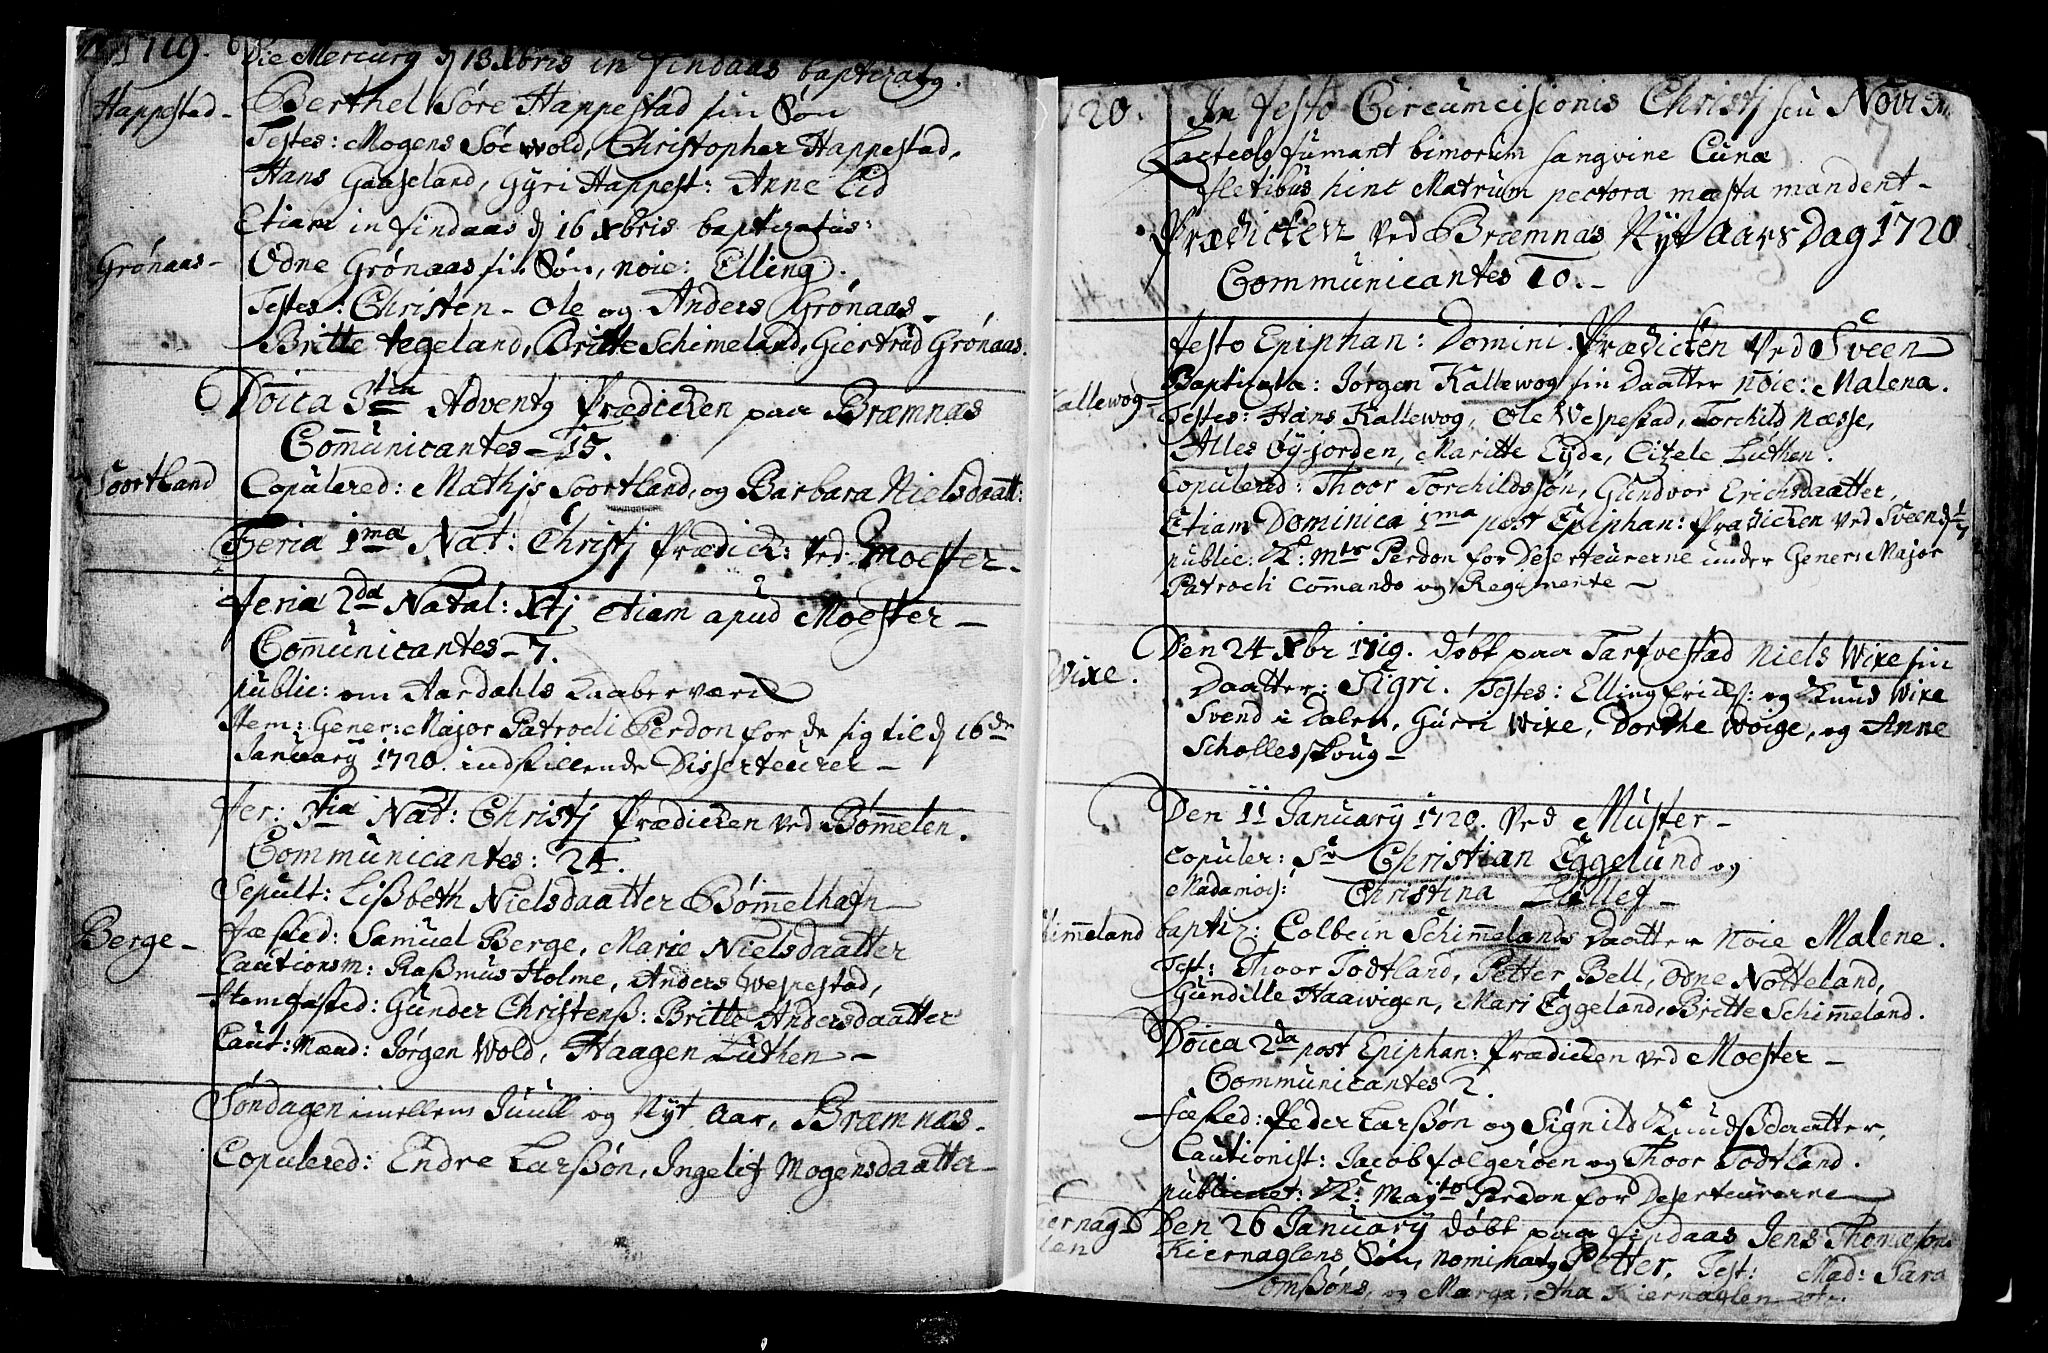 1719.
Die Mercurij d 13 Xbris in findaas baptizatg.
Happestad - Berthel Sòre Happestad sin Sön
Testes: Mogens Söewold, Christopher Happestad,
Hans Gaaseland, Gÿri Happest: Anne Eid
Etiam in findaas d 16 Xbris baptizatus:
Grönaas - Odne Grönaas sin Sön, noie: Elling.
Testes: Christen - Ole og Anders Grönaas -
Britte tegeland, Britte Schimeland, Giertrud Grönaas.
Doica 3tia Adventg Prædicken paa Bræmnæs
Communicantes - 15.
Soortland Copulered: Mathis Soortland, og Barbara Nielsdaatt:
Feria 1ma Nat: Christj Prædick: ved Moester -
Feria 2da Natal: Xtj etiam apud Moester -
Communicantes - 7.
public: om Aardahls Kaaberværck
Item: Gener: Major Patrocli Perdon for de sig til d 16de
Januarÿ 1720. indstillende Disserteurer -
Fer: 3tia Nat: Christj Prædicken ved Bömmelen.
Communicantes: 24.
Sepult: Lißbeth Nielsdaatter Bömmelhafn
Berge - fæsted: Samuel Berge, Marie Nielsdaatter
Cautionsm: Raßmus Holme, Anders Wespestad,
Item fæsted: Gunder Christenß: Britte Andersdaatter
Caut: Mænd: Jörgen Wold, Haagen Luthen -
Söndagen imellem Juull og Nÿt aar, Bræmnæs -
Copulered: Endre Larßön, Ingelif Mogensdaatter -
720. In festo Circumcisionis Christj seu Novi
7
Lacteolg fumant bimorum sangvine Cunæ
fletibus hinc Matrum pectora mæsta mandent -
Prædicken ved Bræmnæs Nÿt aars Dag 1720
Communicantes 10. -
festo Epiphan: Domini. Prædicken ved Sveen
Kallewog - Baptizata: Jörgen Kallewog sin Daatter noie: Malena.
Testes: Hans Kallewog, Ole Wespestad, Torchild Næsse,
Alles Öÿjorden, Maritte Eÿde, Citzele Luthen.
Copulered: Thoor Torchildssön, Gundvor Erichsdaatter,
Etiam Dominica 1ma post Epiphan: Prædicken ved Sveen d 1/7
public: K: Mts Perdon for Deserteurerne under Gener: Major
Patrocli Commando og Regimente -
Wixe. Den 24 Xbr 1719. döbt paa Tarfvestad Niels Wixe sin
Daatter: Sigri. Testes: Elling Erichs: og Knud Wixe
Svend i Dalen, Gurri Wixe, Dorthe Woige, og Anne
Schollesskoug -
Den 11 Januarÿ 1720. ved Muster -
Copuler: Sr Christian Eggelund og
Madamois: Christina
himmeland baptiz: Colbein Schimmelands Daatter Noie Malene.
Test: Thoor Todtland, Petter Bell, Odne Notteland,
Gundille Haawigen, Mari Eggeland, Britte Schimmeland.
Doica 2da post Epiphan: Prædicken ved Moester -
Communicantes 2.
fæsted: Peder Larßön og Signild Knudßdaatter,
Cautionist: Jacob folgeröen og Thoor Todtland.
publicert: K: Mayts Perdon for Deserteurerne
iernag
len Den 26 Januarÿ döbt paa findaas Jens Thomæsön
Kiernaglens Sön, nominatg Petter, Test: Mad: Sara
omßöns, og Margaretha Kiernaglen